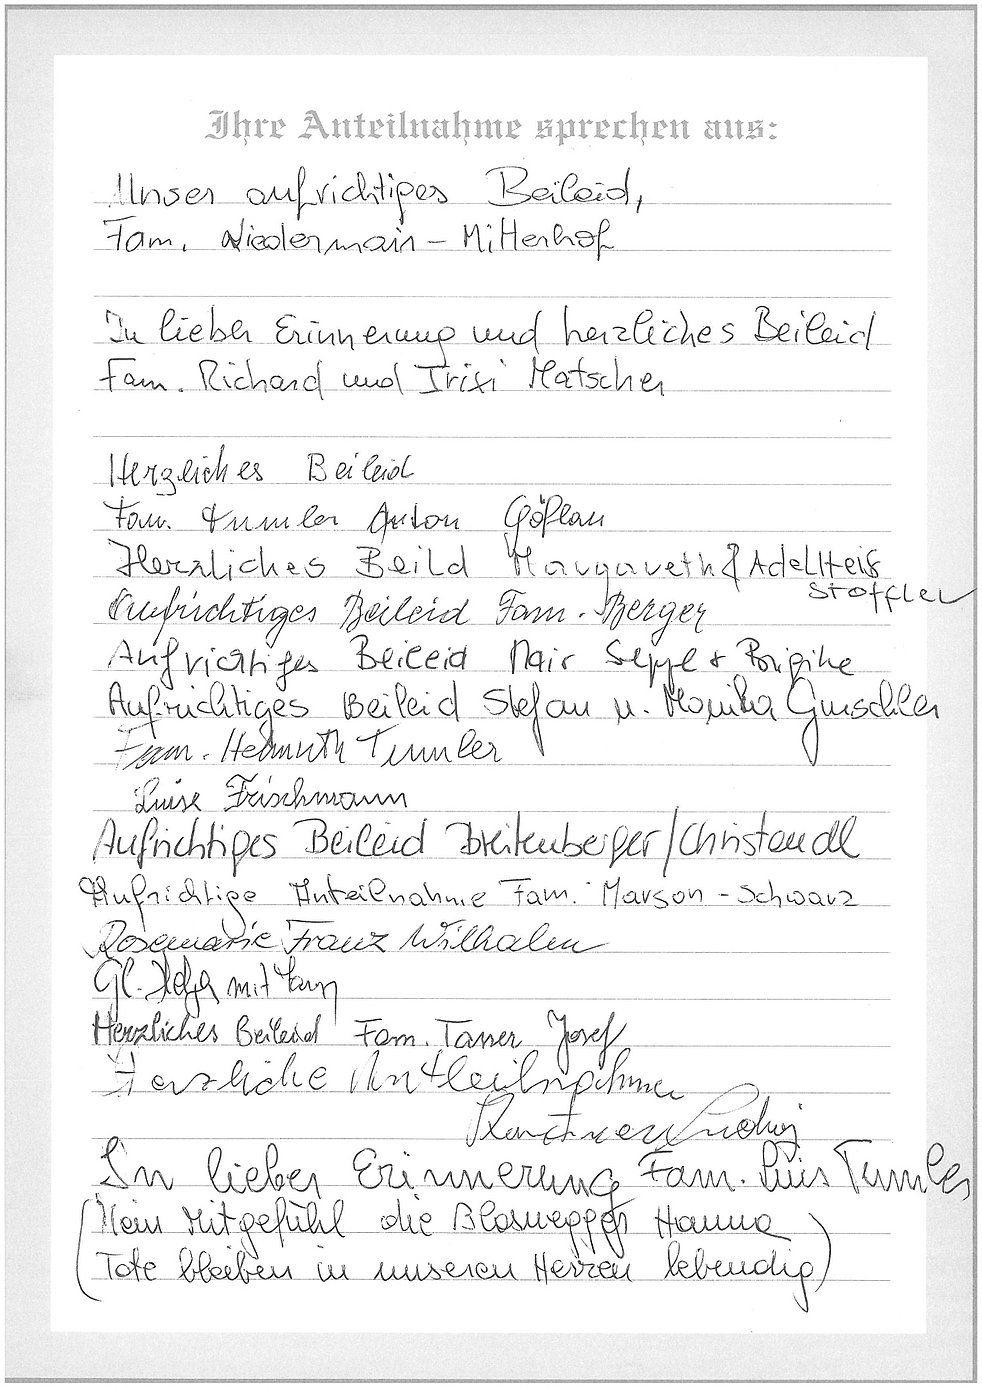 Ihre Anteilnahme sprechen aus:
Unser aufrichtiges Beileid,
Fam. Niedermair - Mitterhof
In lieber Erinnerung und herzliches Beileid
Fam. Richard und Trixi Matscher
Herzliches Beileid
Fam. Tumler Anton Göflan
Herzliches Beild Margareth & Adelheid
Stoffler
Aufrichtiges Beileid Fam. Berger
Aufrichtiges Beileid Mair Seppl + Brigitte
Aufrichtiges Beileid Stefan u. Monika Gurschler
Fam. Helmuth Tumler
Luise Frischmann
Aufrichtiges Beileid Breitenberger/Christandl
Aufrichtige Anteilnahme Fam. Marson - Schwarz
Rosemarie Franz Wilhalm
Helga mit
Herzliches Beileid Fam. Tasser Josef
Herzliche Anteilnahme
Ludwig
In lieber Erinnerung Fam. Luis Tumler
(Mein Mitgefühl die Blaswegger Hanna
Tote bleiben in unseren Herzen lebendig)